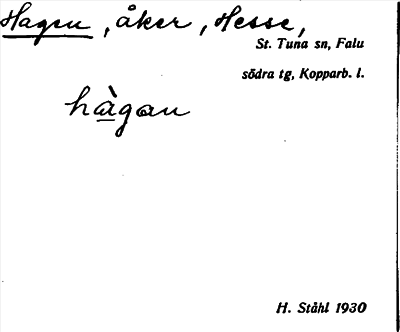 Hagen, åker, Hesse,
St. Tuna sn, Falu
södra tg, Kopparb. l.
hàgan
H. Ståhl 1930